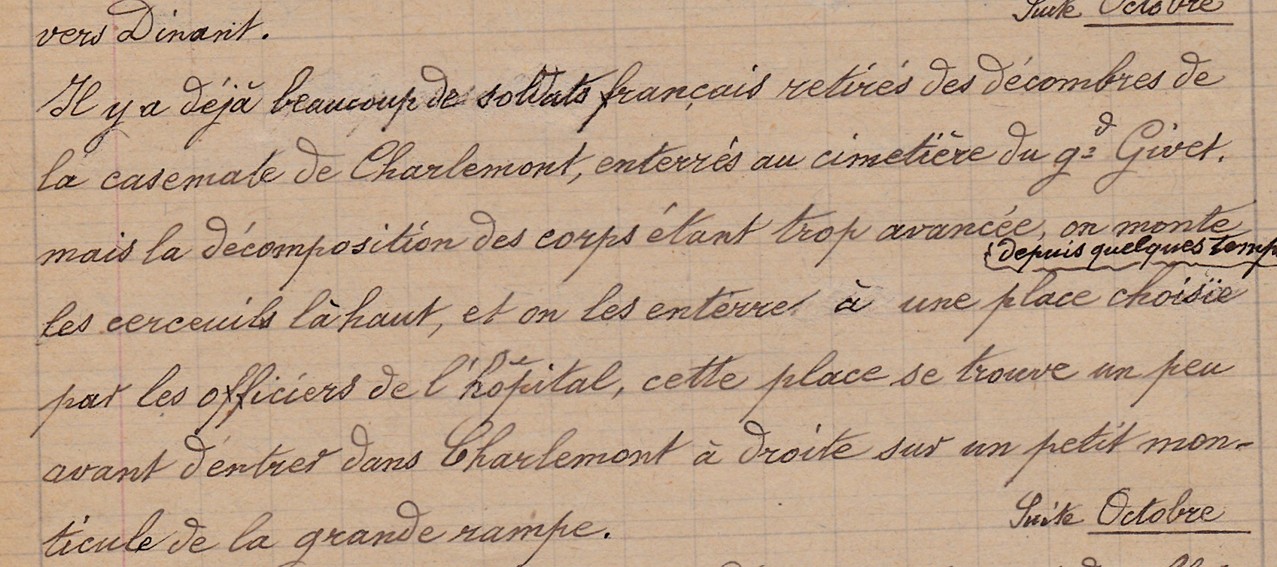 Suite Octobre
vers Dinant.
Il y a déjà beaucoup de soldats français retirés des décombres de
la casemate de Charlemont, enterrés au cimetière du gd Givet.
mais la décomposition des corps étant trop avancée, on monte
depuis quelques temps
les cerceuils là haut, et on les enterre à une place choisie
par les officiers de l'hôpital, cette place se trouve un peu
avant d'entrer dans Charlemont à droite sur un petit mon-
ticule de la grande rampe.
Suite Octobre